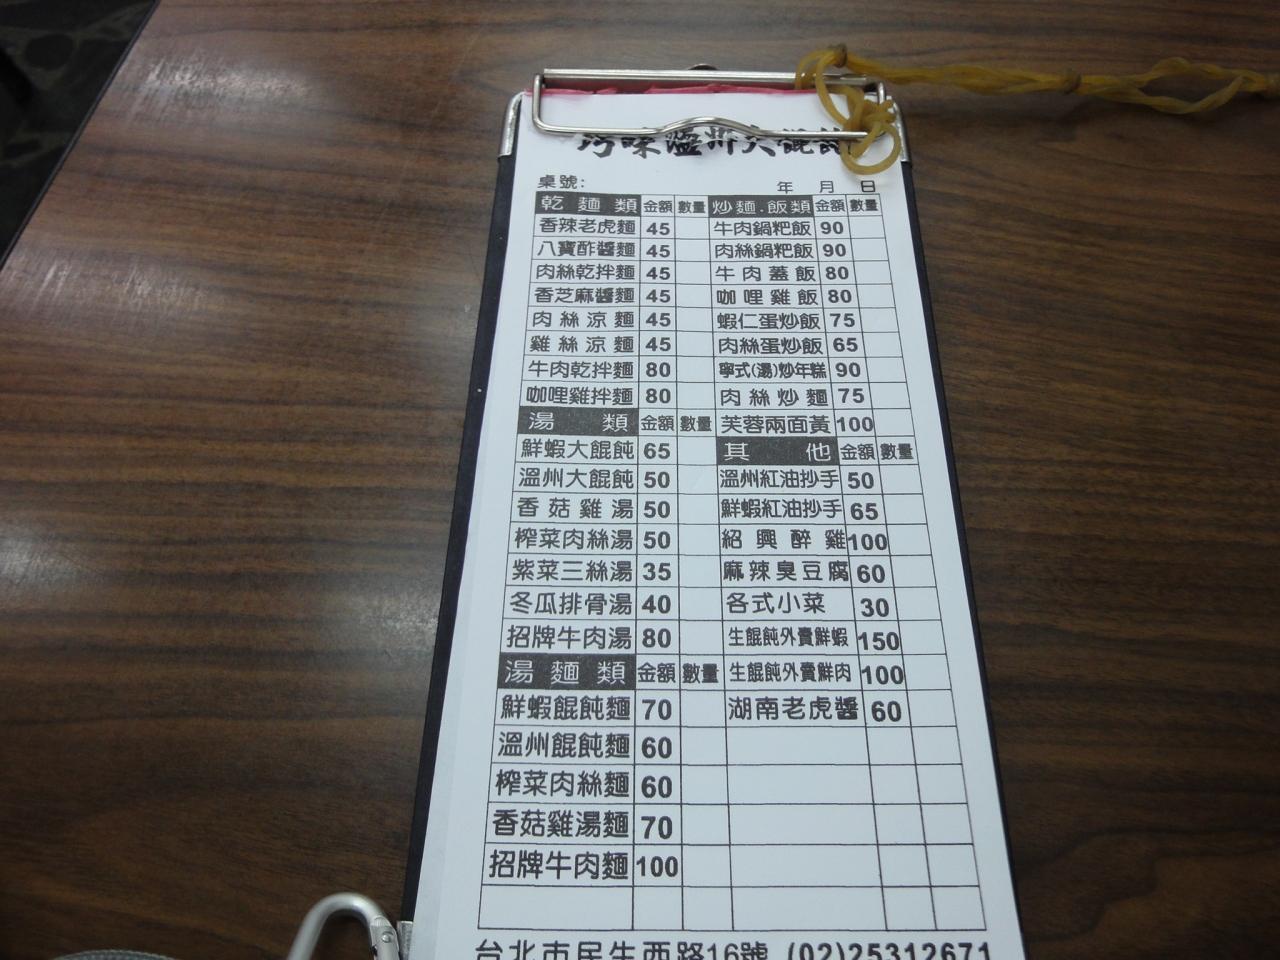 巧味溫州大餛飩
桌號: 年 月 日
乾麵類 金額 數量 炒麵.飯類 金額 數量
香辣老虎麵 45 牛肉鍋粑飯 90
八寶酢醬麵 45 肉絲鍋粑飯 90
肉絲乾拌麵 45 牛肉蓋飯 80
香芝麻醬麵 45 咖哩雞飯 80
肉絲涼麵 45 蝦仁蛋炒飯 75
雞絲涼麵 45 肉絲蛋炒飯 65
牛肉乾拌麵 80 寧式(湯)炒年糕 90
咖哩雞拌麵 80 肉絲炒麵 75
湯類 金額 數量 芙蓉兩面黃 100
鮮蝦大餛飩 65 其他 金額 數量
溫州大餛飩 50 溫州紅油抄手 50
香菇雞湯 50 鮮蝦紅油抄手 65
榨菜肉絲湯 50 紹興醉雞 100
紫菜三絲湯 35 麻辣臭豆腐 60
冬瓜排骨湯 40 各式小菜 30
招牌牛肉湯 80 生餛飩外賣鮮蝦 150
湯麵類 金額 數量 生餛飩外賣鮮肉 100
鮮蝦餛飩麵 70 湖南老虎醬 60
溫州餛飩麵 60
榨菜肉絲麵 60
香菇雞湯麵 70
招牌牛肉麵 100
台北市民生西路16號 (02)25312671